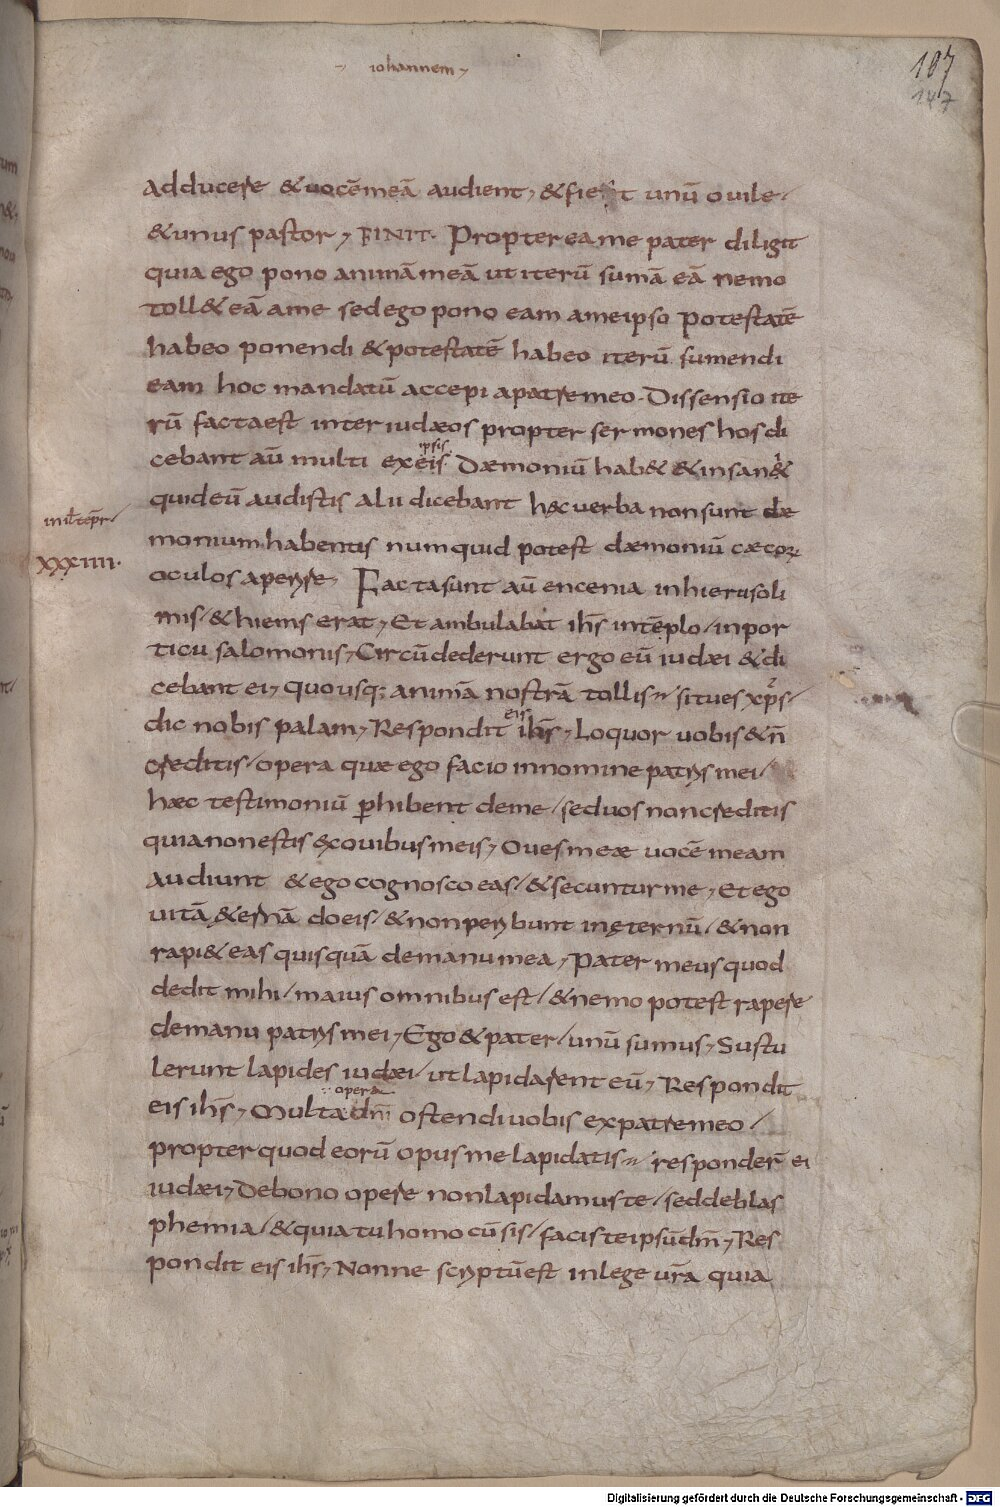 iohannem
107
147
adducere & uocē meā audient, & fient unū ouile
& unus pastor, FINIT. Propterea me pater diligit
quia ego pono animā meā ut iterū sumā eā nemo
toll& eā a me sed ego pono eam a me ipso potestatē
habeo ponendi & potestatē habeo iterū sumendi
eam hoc mandatū accepi a patre meo. Dissensio ite
rū facta est inter iudæos propter sermones hos di
ipsis
cebant aū multi ex eis dæmoniū hab& & insanit
quid eū auditis alii dicebant hęc uerba non sunt dæ
inił tēpr
monium habentis numquid potest dæmoniū cæcoꝝ
XXXIIII.
oculos aperire, Facta sunt aū encenia in hierusoli
mis, & hiems erat, Et ambulabat ihs̄ in tēplo, in por
ticu salomonis, Circūdederunt ergo eū iudæi & di
cebant ei, quousq; animā nostrā tollis, si tu es xp̄s
eis
dic nobis palam, Respondit ihs̄, Loquor uobis & n̄
creditis, opera quæ ego facio in nomine patris mei,
hæc testimoniū ꝑhibent de me, sed uos non creditis
quia non estis ex ouibus meis, Oues meæ uocē meam
audiunt & ego cognosco eas, & secuntur me, Et ego
uitā &ernā do eis, & non peribunt in ęternū, & non
rapi& eas quisquā de manu mea, Pater meus quod
dedit mihi, maius omnibus est, & nemo potest rapere
de manu patris mei, Ego & pater, unū sumus, Sustu
lerunt lapides iudæi, ut lapidarent eū, Respondit
opera
eis ihs̄, Multa ostendi uobis ex patre meo,
propter quod eorū opus me lapidatis, responder̄ ei
iudæi, De bono opere non lapidamus te, sed de blas
phemia, & quia tu homo cū sis, facis te ipsū dm̄, Res
pondit eis ihs̄, Nonne scriptū est in lege ur̄a quia
Digitalisierung gefördert durch die Deutsche Forschungsgemeinschaft - DFG